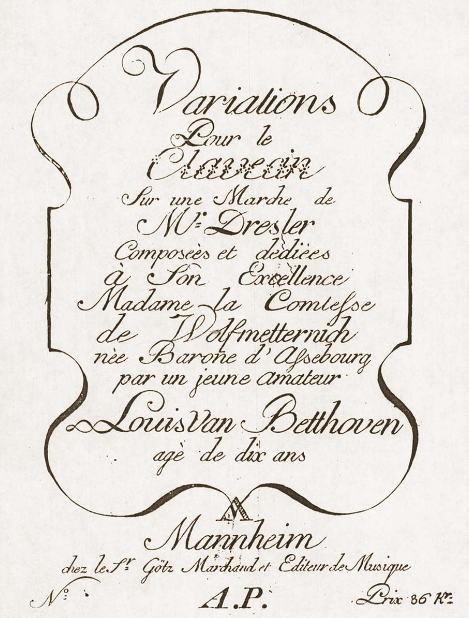 Variations
Pour le
Clavecin
Sur une Marche de
Mr. Dresler
Composeès et dedièes
à Son Excellence
Madame la Comtesse
de Wolfmetternich
nèe Barone d'Assebourg
par un jeune amateur
Louis van Betthoven
agè de dix ans
Mannheim
chez le Sr. Götz Marchand et Editeur de Musique
No.
A.P.
Prix 36 Kr.